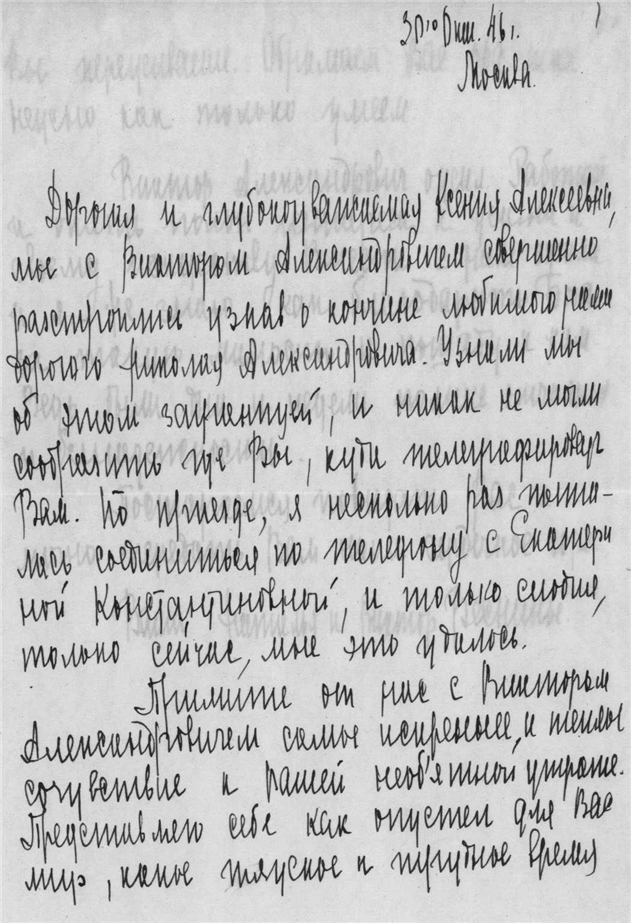 30го Окт. 46г.
Москва.
Дорогая и глубокоуважаемая Ксения Алексеевна,
мы с Виктором Александровичем совершенно
расстроились узнав о кончине любимого нами
дорогого Николая Александровича. Узнали мы
об этом заграницей, и никак не могли
сообразить где Вы, куда телеграфировать
Вам. По приезде, я несколько раз пыта-
лась соединиться по телефону с Екатери
ной Константиновной, и только сегодня,
только сейчас, мне это удалось.
Примите от нас с Виктором
Александровичем самые искренные, и теплые
сочувствие к Вашей необ'ятной утрате.
Представляю себе как опустел для Вас
мир, какое тяжкое и трудное время